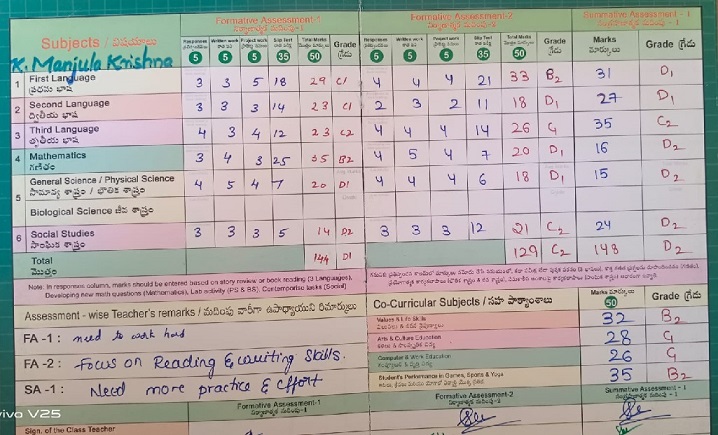 Formative Assessment-1 Formative Assessment-2 Summative Assessment - 1
Subjects / విషయాలు Responses Written work Project work Slip Test Total Marks Grade గ్రేడు Responses Written work Project work Slip Test Total Marks Grade గ్రేడు Marks మార్కులు Grade గ్రేడు
5 5 5 35 50 5 5 5 35 50 50
K. Manjula Krishna
1 First Language 3 3 5 18 29 C1 4 4 4 21 33 B2 31 D1
ప్రథమ భాష
2 Second Language 3 3 3 14 23 C1 2 3 2 11 18 D1 27 D1
ద్వితీయ భాష
3 Third Language 4 3 4 12 23 C2 4 4 4 14 26 C1 35 C2
తృతీయ భాష
4 Mathematics 3 4 3 25 35 B2 4 5 4 7 20 D1 16 D2
గణితం
5 General Science / Physical Science 4 5 4 7 20 D1 4 4 4 6 18 D1 15 D2
సామాన్య శాస్త్రం / భౌతిక శాస్త్రం
Biological Science జీవ శాస్త్రం
6 Social Studies 3 3 3 5 14 D2 3 3 3 12 21 C2 24 D2
సాంఘిక శాస్త్రం
Total 144 D1 129 C2 148 D2
మొత్తం
Note: In responses column, marks should be entered based on story review or book reading (3 Languages),
Developing new math questions (Mathematics), Lab activity (PS & BS), Contemporary tasks (Social)
Assessment - wise Teacher's remarks / మదింపు వారీగా ఉపాధ్యాయుని రిమార్కులు
FA - 1 : need to work hard
FA - 2 : Focus on Reading & writing skills.
SA - 1 : Need more practice & effort
Co-Curricular Subjects / సహ పాఠ్యాంశాలు Marks మార్కులు 50 Grade గ్రేడు
Values & Life Skills 32 B2
Arts & Culture Education 28 C1
Computer & Work Education 26 C1
Student's Performance in Games, Sports & Yoga 35 B2
Formative Assessment-1 Formative Assessment-2 Summative Assessment - 1
Sign. of the Class Teacher
vivo V25